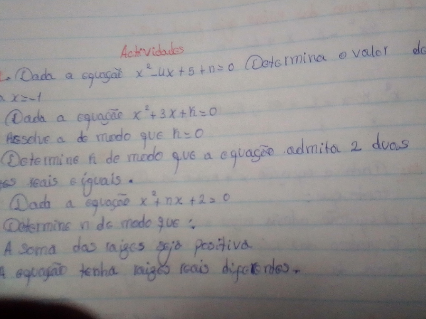 Actividades
1. Dada a equação x²-4x+5+n=0 Determina o valor de
x=-1
Dada a equação x²+3x+n=0
Resolve a de modo que n=0
Determine n de modo que a equação admita 2 duas
reais e iguais.
Dada a equação x²+nx+2=0
Determine n de modo que:
A soma das raizes seja positiva
A equação tenha raizes reais diferentes.